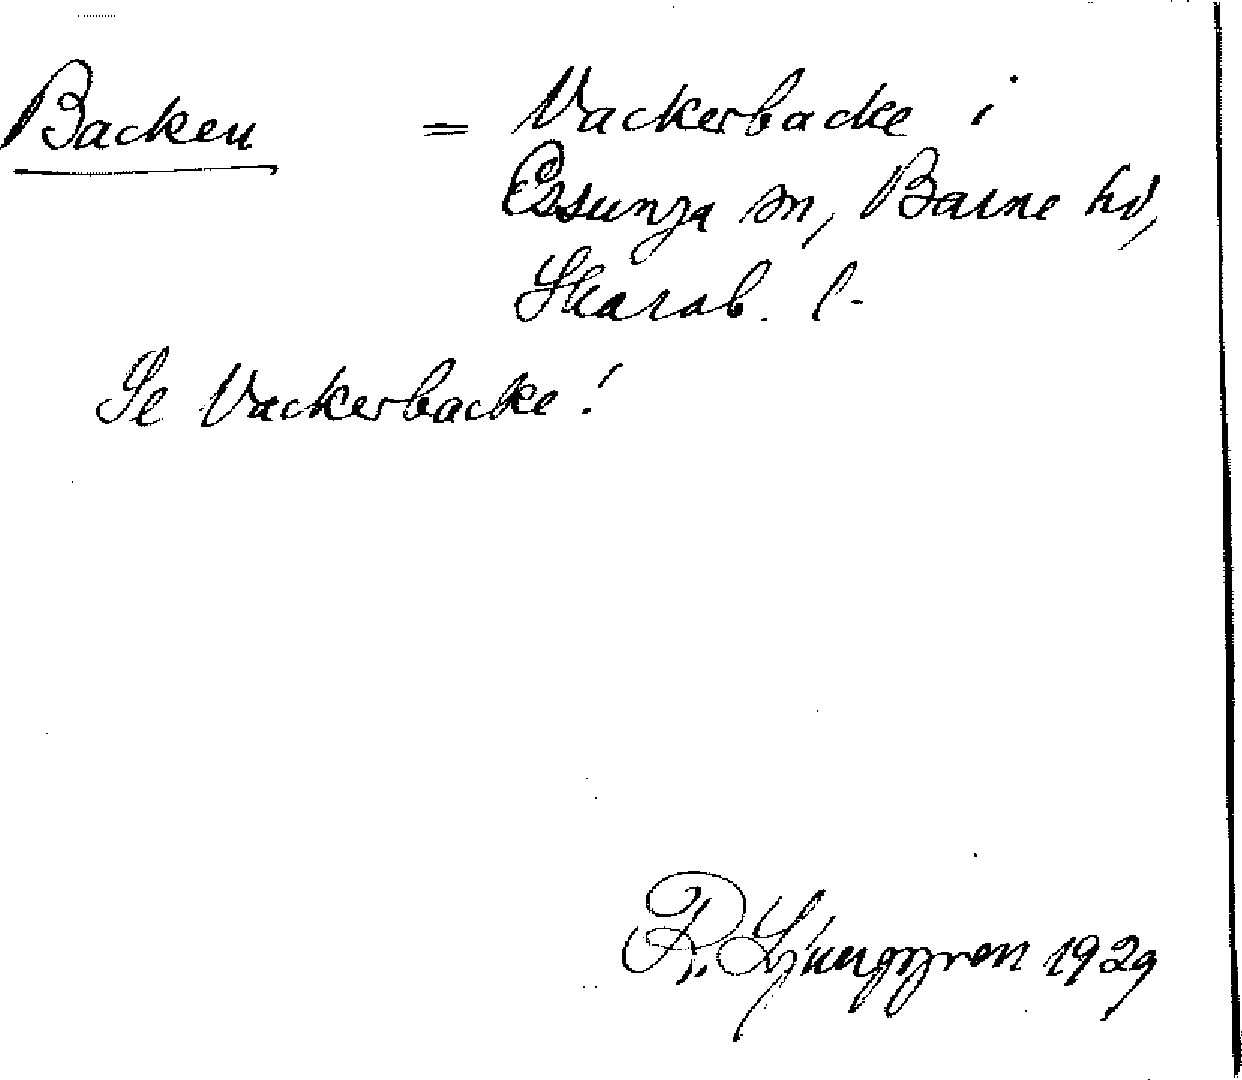 Backen = Vackerbacke i
Essunga sn, Barne hd,
Skarab. l.
Se Vackerbacke!
R. Ljunggren 1929